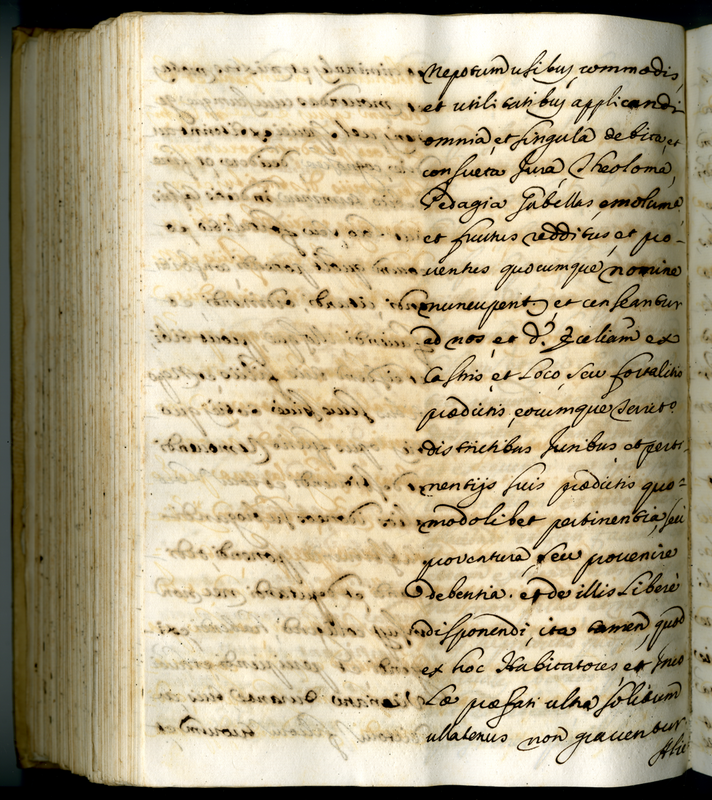 Nepotum usibus, commodis,
et utilitatibus applicandi
omnia, et singula debita, et
consueta Jura, Theolonea,
Pedagia Gabellas, emolumē,
et fructus redditus, et pro-
uentus quocumque nomine
nuncupent.r, et censeantur
ad nos, et d. Eccliam ex
Castris, et Loco, seu fortalitio
prædictis, eorumque Territ.o
districtibus Juribus et perti-
nentijs suis prædictis quo=
modolibet pertinentia, seu
prouentura, seu prouenire
debentia. et de illis Liberè
disponendi, ita tamen, quod
ex hoc Habitatores et Inco
Læ præfati ultra solitum
ullatenus non grauentur
Alie